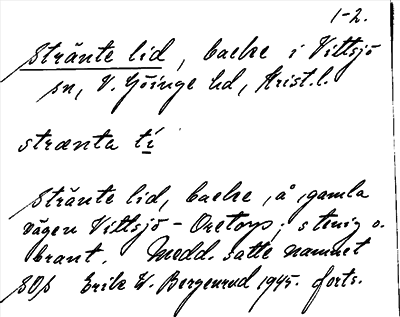 1-2.
Stränte lid, backe i Vittsjö
sn, V. Göinge hd, Krist.l.
strænta lí
Stränte lid, backe, å gamla
vägen Vittsjö - Oretorp; stenig o.
brant. Medd. satte namnet
Erik W. Bergenrud 1945. forts.